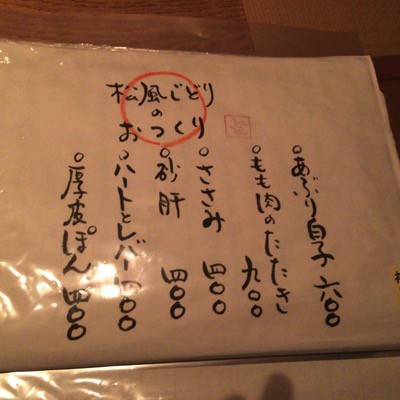 松風じどり
の
おつくり
○あぶり白子 六〇〇
○もも肉のたたき 九〇〇
○ささみ 四〇〇
○砂肝 四〇〇
○ハートとレバー
○厚皮ぽん 四〇〇